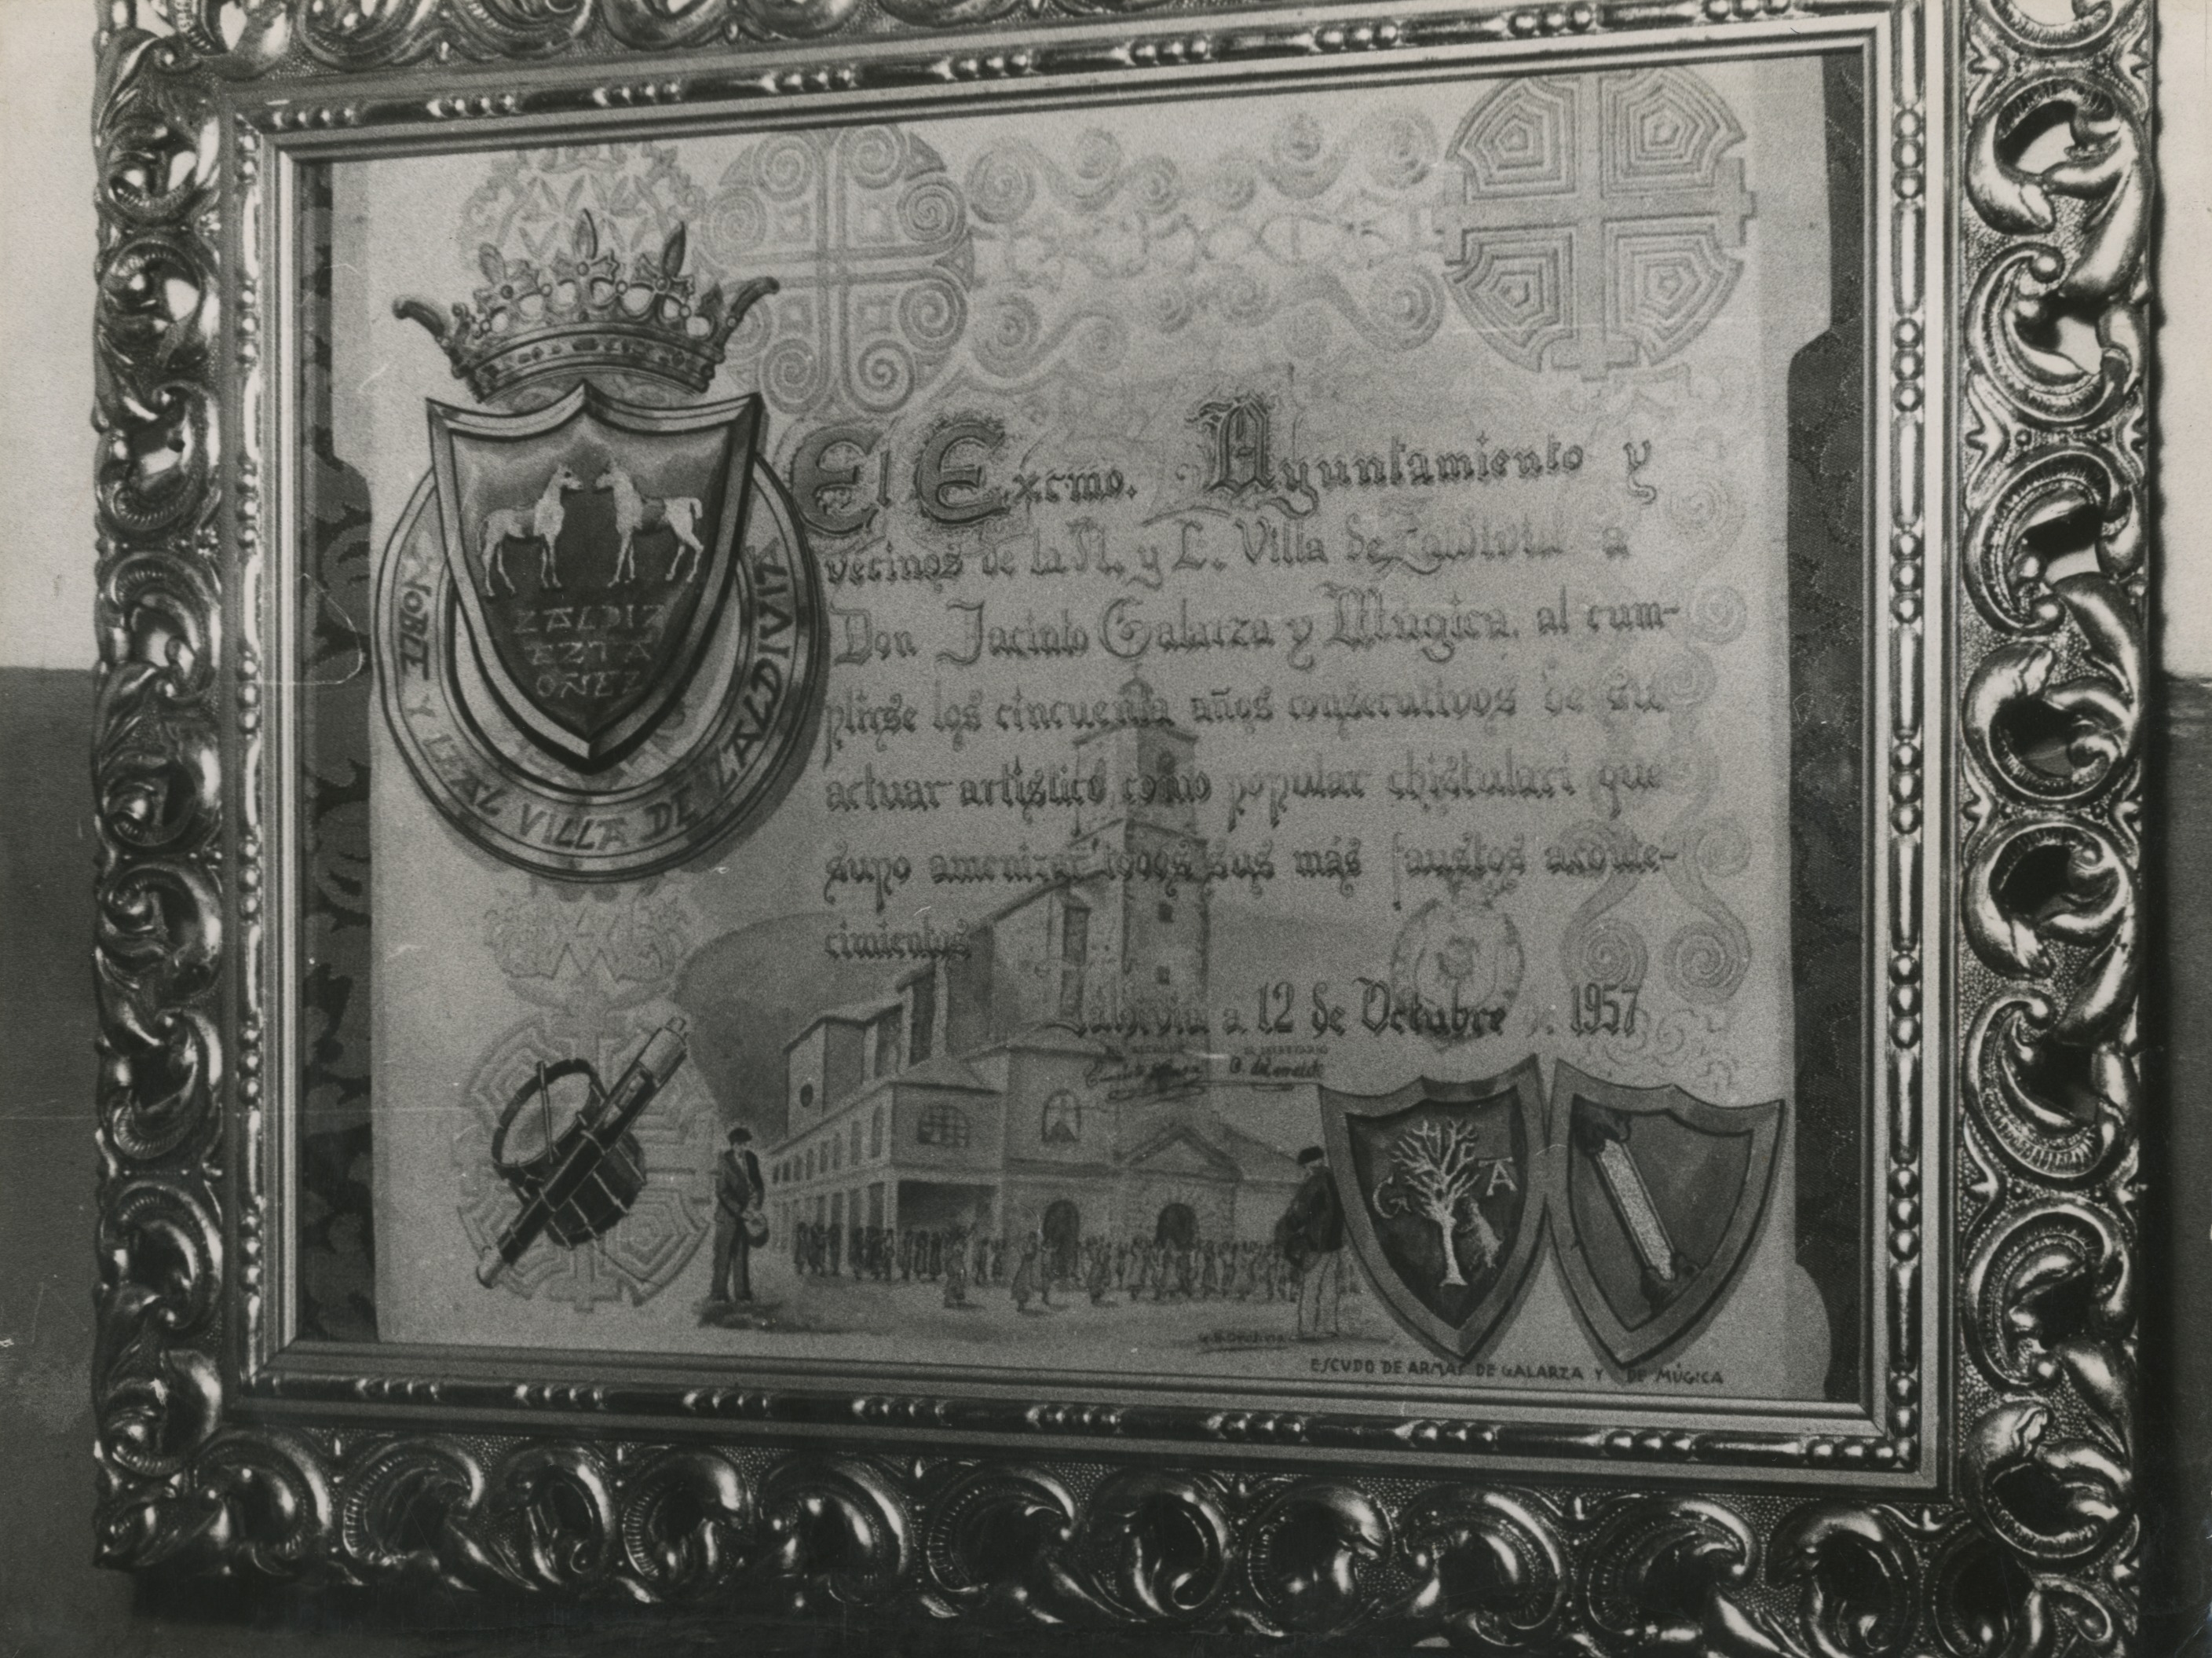 El Excmo. Ayuntamiento y
vecinos de la N. y L. Villa de Zaldivia a
Don Jacinto Galarza y Múgica, al cum-
plirse los cincuenta años consecutivos de su
actuar artístico como popular chistulari que
supo amenizar todos sus más faustos aconte-
cimientos
Zaldivia a 12 de Octubre de 1957
ZALDIZ
EZTA
OÑEZ
NOBLE Y LEAL VILLA DE ZALDIVIA
G A
ESCUDO DE ARMAS DE GALARZA Y DE MÚGICA